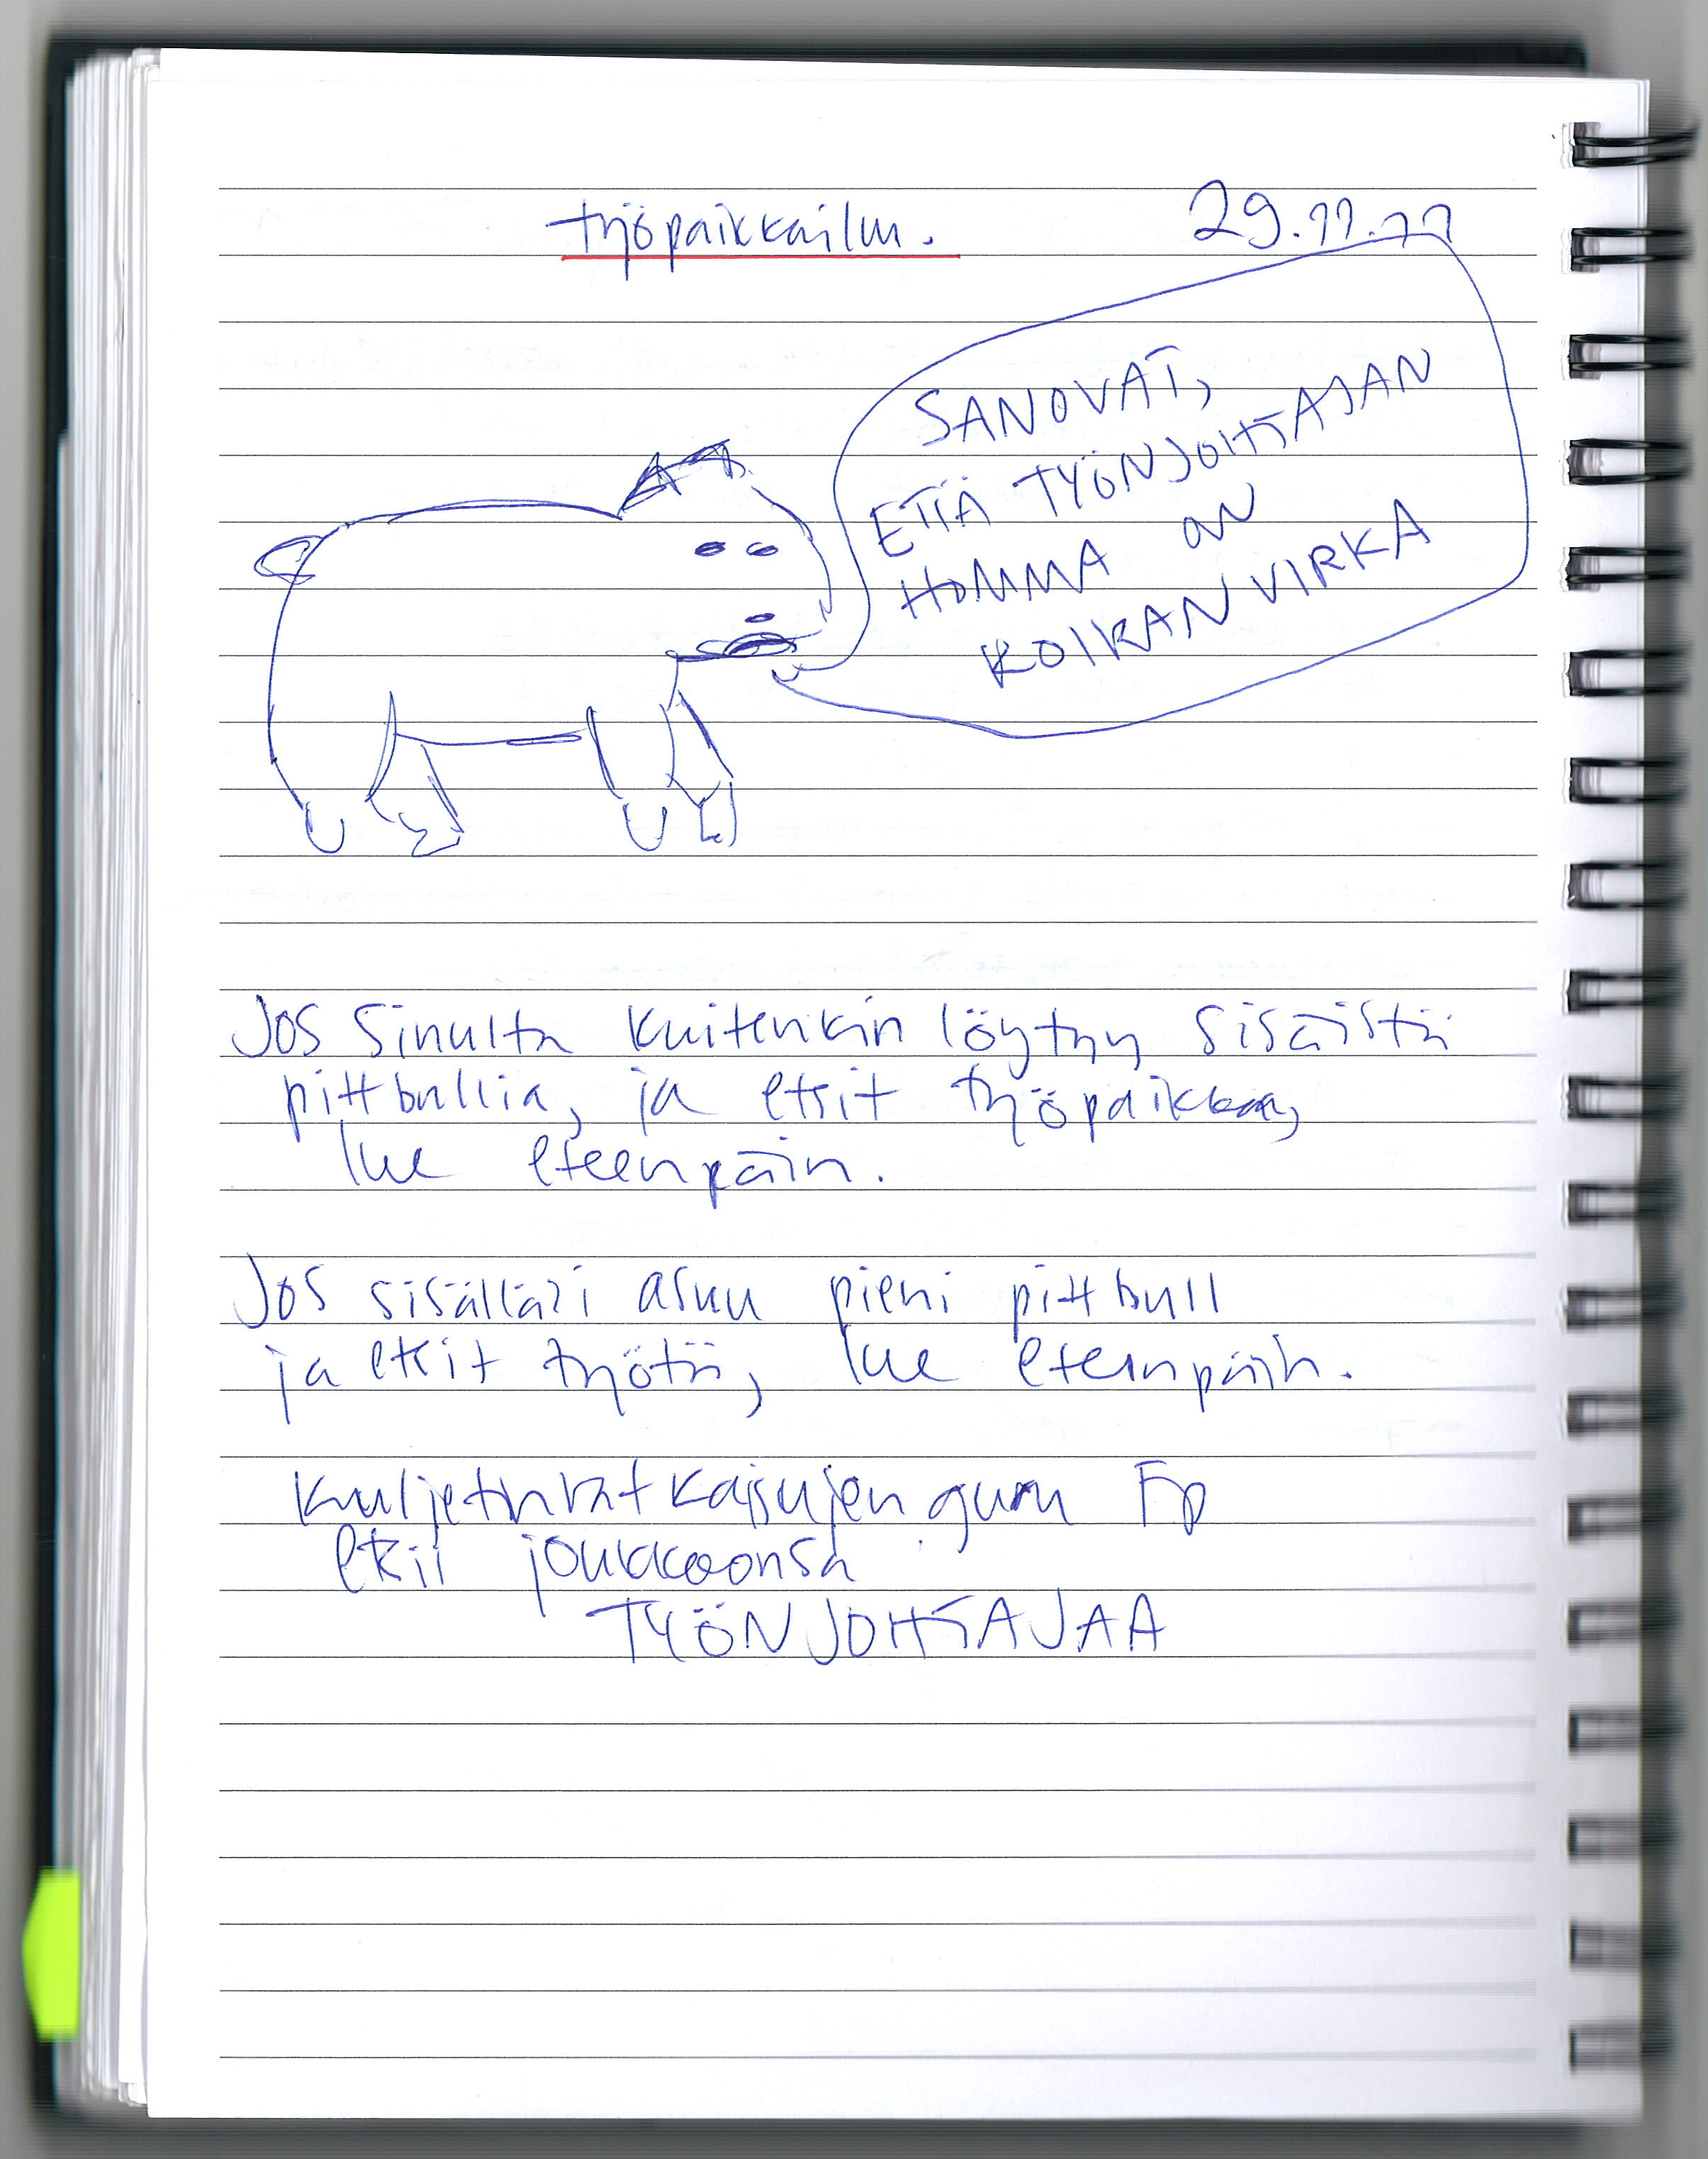 työpaikkailm.
29.11.11
SANOVAT,
ETTÄ TYÖNJOHTAJAN
HOMMA ON
KOIRANVIRKA
Jos sinulta kuitenkin löytyy sisäistä
pittbullia, ja etsit työpaikkaa,
lue eteenpäin.
Jos sisälläsi asuu pieni pittbull
ja etsit työtä, lue eteenpäin.
Kuljetusratkaisujen guru Fp
etsii joukkoonsa
TYÖNJOHTAJAA